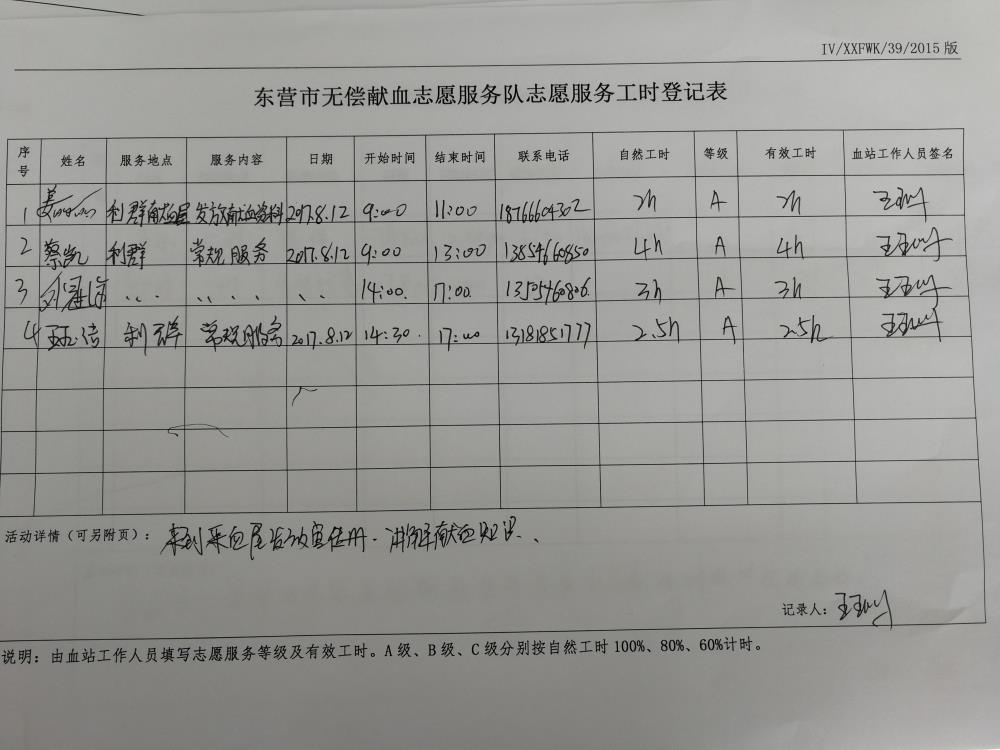 IV/XXFWK/39/2015 版
东营市无偿献血志愿服务队志愿服务工时登记表
序号 姓名 服务地点 服务内容 日期 开始时间 结束时间 联系电话 自然工时 等级 有效工时 血站工作人员签名
1 利群献血屋 发放献血资料 2017.8.12 9:00 11:00 18766604302 2h A 2h
2 蔡凯 利群 常规服务 2017.8.12 9:00 13:00 13854660850 4h A 4h
3 、、、 、、、、 、、 14:00. 17:00. 13505460806. 3h A 3h
4 利群 常规服务 2017.8.12 14:30. 17:00 13181851777 2.5h A 2.5h
活动详情（可另附页）： 来到采血屋发放宣传册、讲解献血知识、、
记录人:
说明: 由血站工作人员填写志愿服务等级及有效工时。A 级、B 级、C 级分别按自然工时 100%、80%、60%计时。